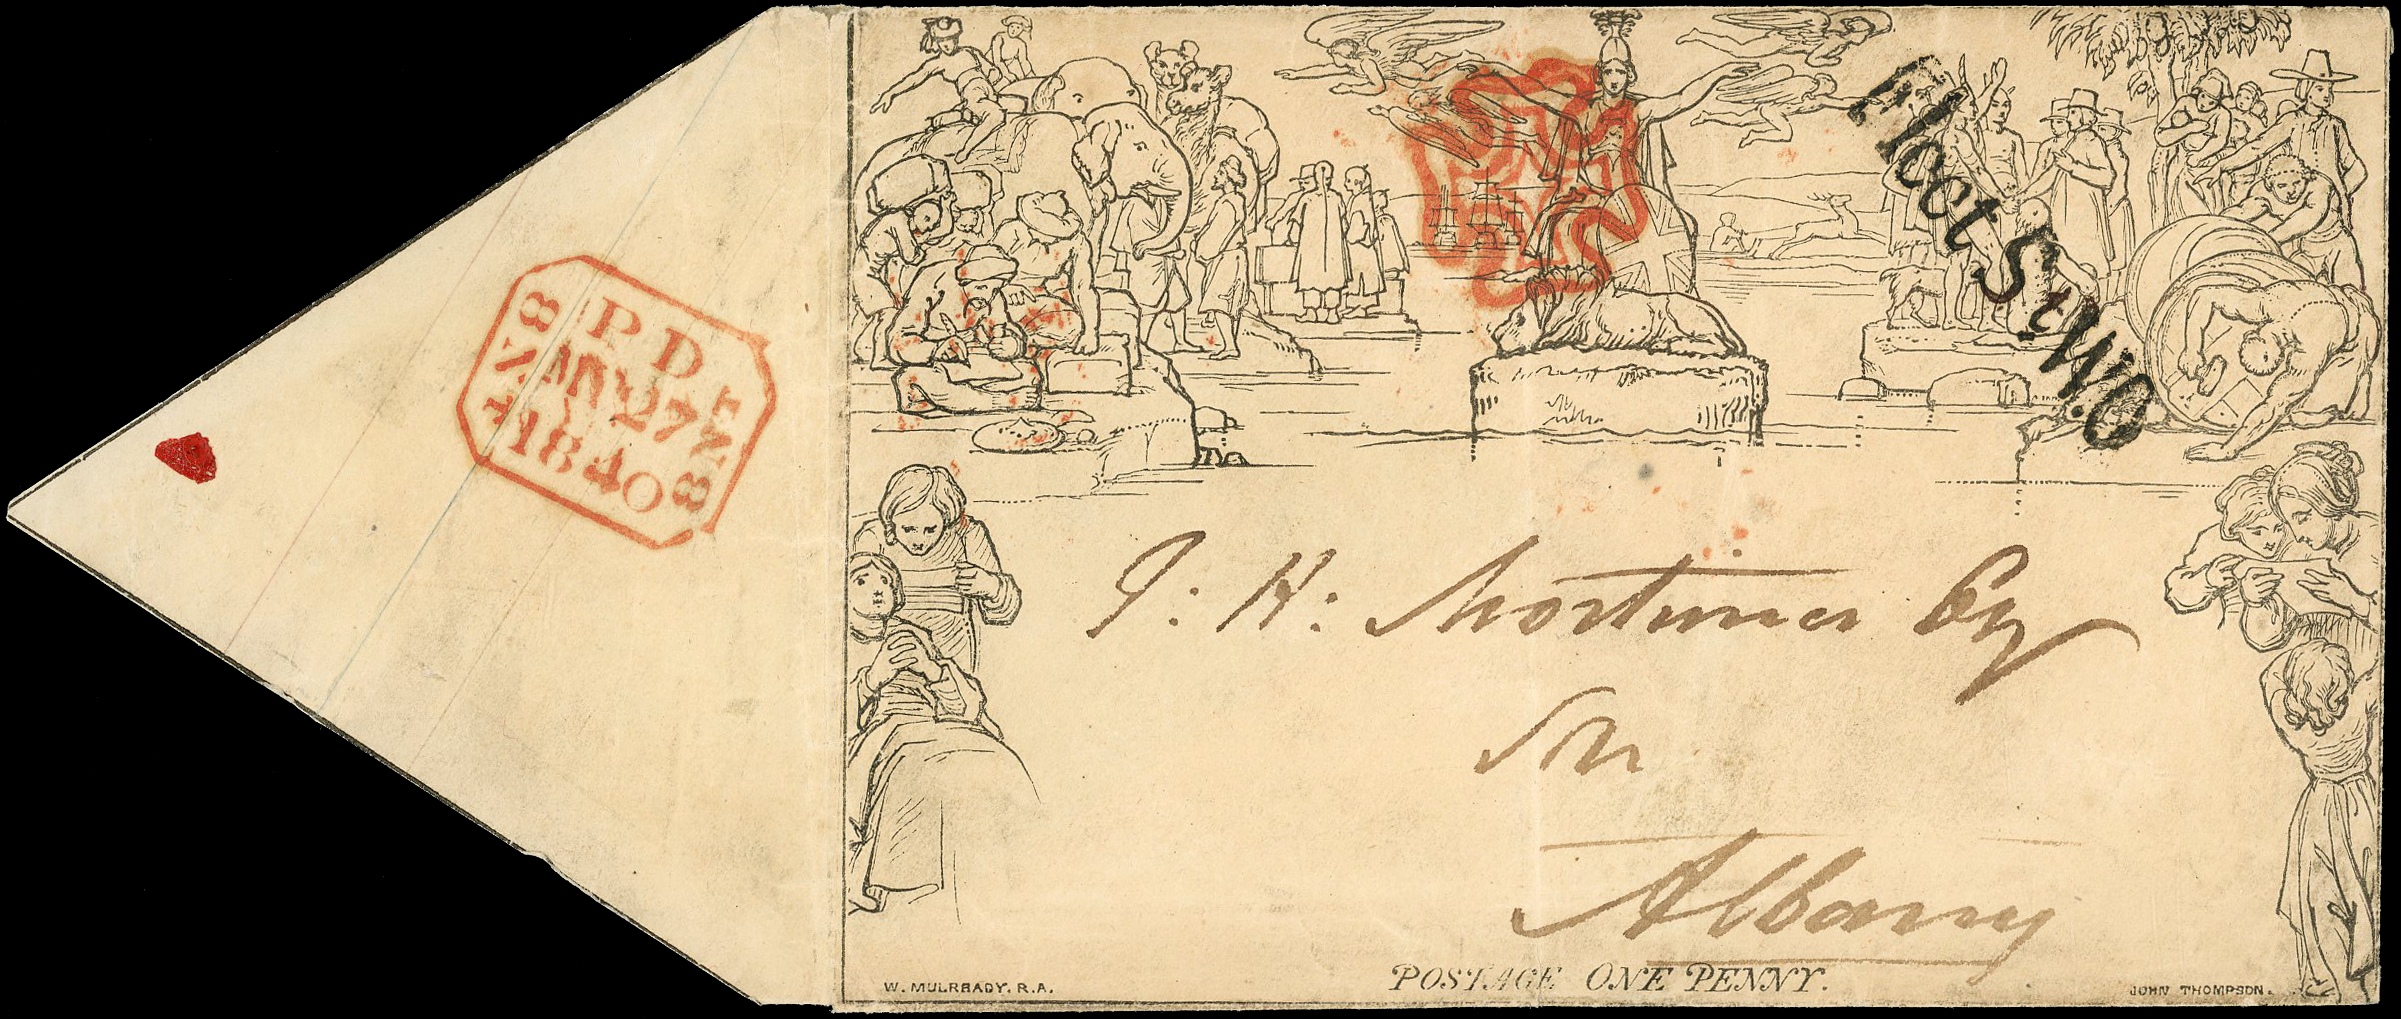 8 NT 8 NT
P D
MY 27
1840
Fleet St. W.O
J: H: Mortimer Esq
Albany
POSTAGE ONE PENNY.
W. MULREADY. R.A.
JOHN THOMPSON.